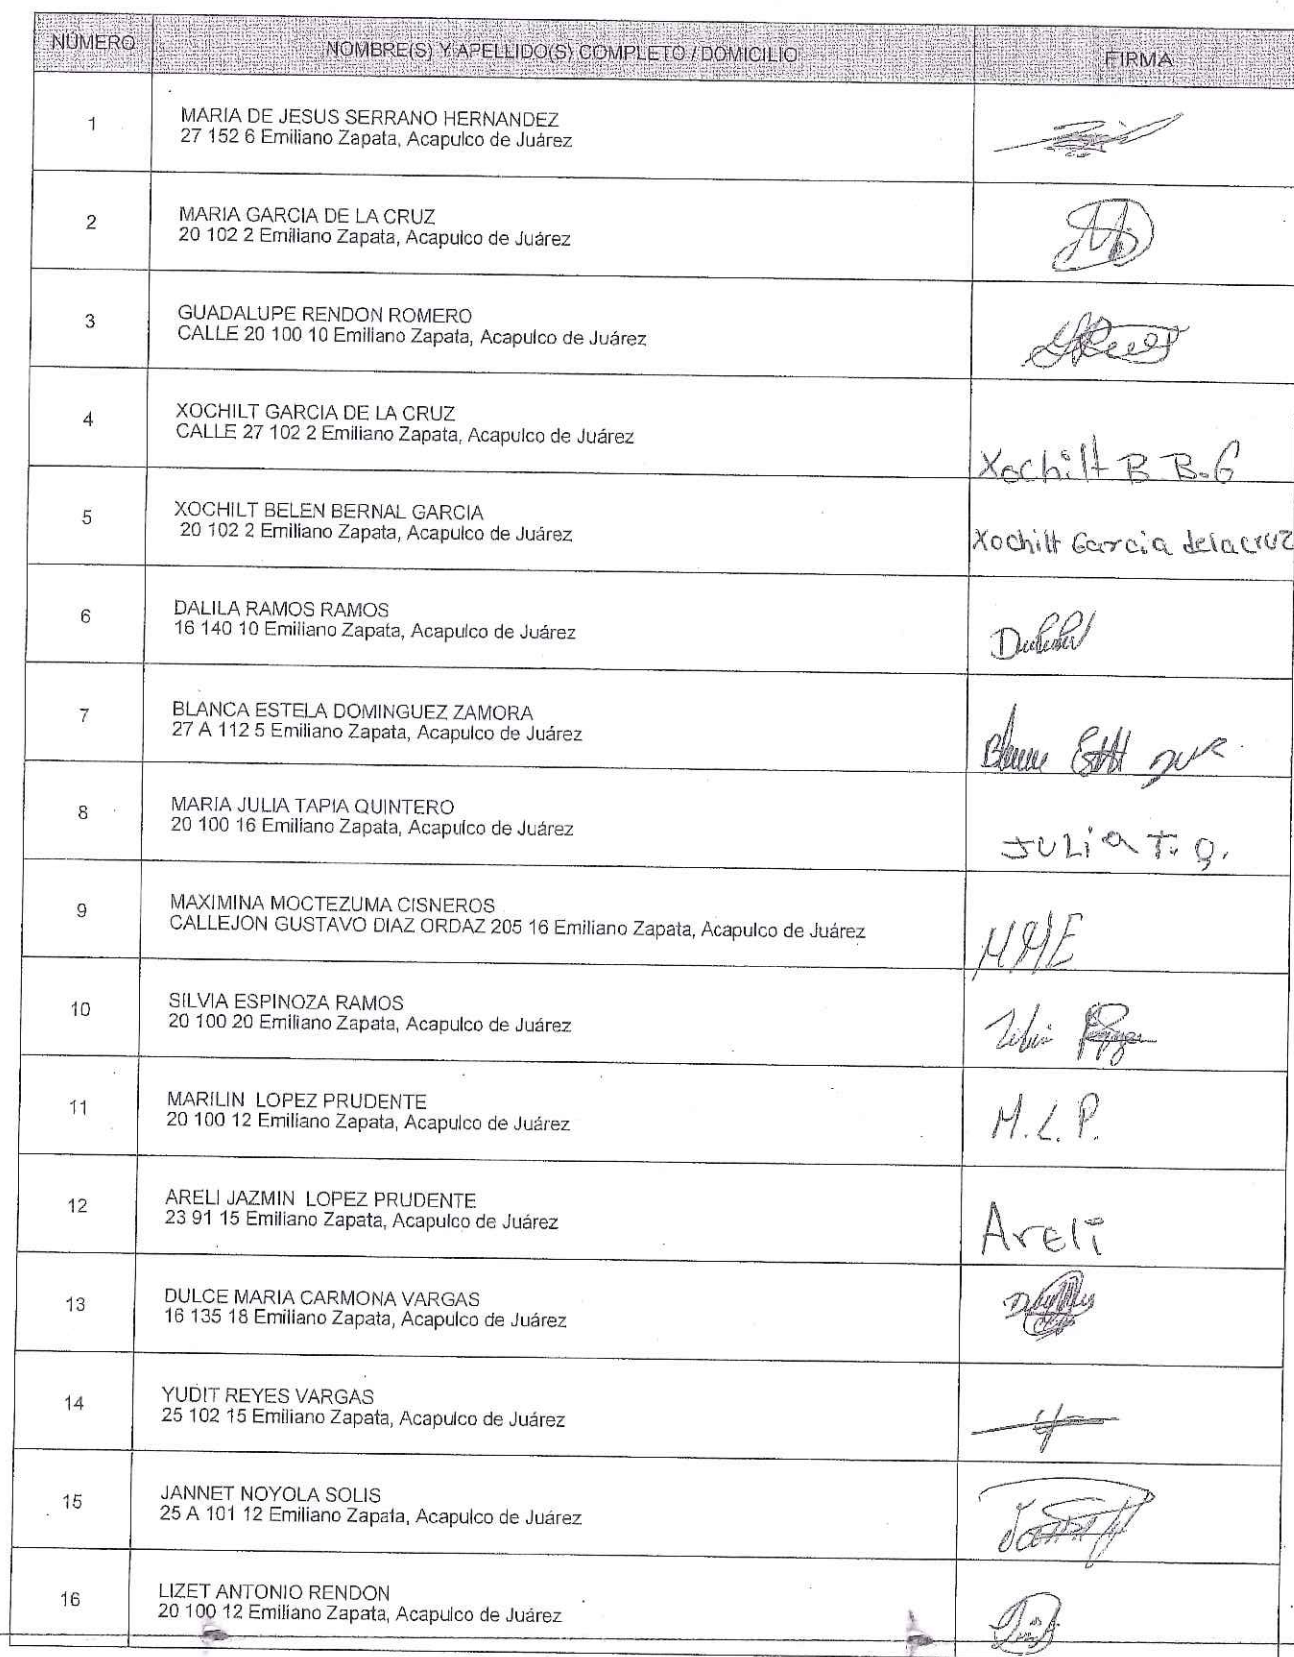 NÚMERO NOMBRE(S) Y APELLIDO(S) COMPLETO / DOMICILIO FIRMA
1 MARIA DE JESUS SERRANO HERNANDEZ
27 152 6 Emiliano Zapata, Acapulco de Juárez
2 MARIA GARCIA DE LA CRUZ
20 102 2 Emiliano Zapata, Acapulco de Juárez
3 GUADALUPE RENDON ROMERO
CALLE 20 100 10 Emiliano Zapata, Acapulco de Juárez
4 XOCHILT GARCIA DE LA CRUZ
CALLE 27 102 2 Emiliano Zapata, Acapulco de Juárez
Xochilt B B.G
5 XOCHILT BELEN BERNAL GARCIA
20 102 2 Emiliano Zapata, Acapulco de Juárez
Xochilt Garcia delacruz
6 DALILA RAMOS RAMOS
16 140 10 Emiliano Zapata, Acapulco de Juárez
7 BLANCA ESTELA DOMINGUEZ ZAMORA
27 A 112 5 Emiliano Zapata, Acapulco de Juárez
8 MARIA JULIA TAPIA QUINTERO
20 100 16 Emiliano Zapata, Acapulco de Juárez
JULia T. Q.
9 MAXIMINA MOCTEZUMA CISNEROS
CALLEJON GUSTAVO DIAZ ORDAZ 205 16 Emiliano Zapata, Acapulco de Juárez
10 SILVIA ESPINOZA RAMOS
20 100 20 Emiliano Zapata, Acapulco de Juárez
11 MARILIN LOPEZ PRUDENTE
20 100 12 Emiliano Zapata, Acapulco de Juárez
M.L.P.
12 ARELI JAZMIN LOPEZ PRUDENTE
23 91 15 Emiliano Zapata, Acapulco de Juárez
Areli
13 DULCE MARIA CARMONA VARGAS
16 135 18 Emiliano Zapata, Acapulco de Juárez
14 YUDIT REYES VARGAS
25 102 15 Emiliano Zapata, Acapulco de Juárez
15 JANNET NOYOLA SOLIS
25 A 101 12 Emiliano Zapata, Acapulco de Juárez
16 LIZET ANTONIO RENDON
20 100 12 Emiliano Zapata, Acapulco de Juárez